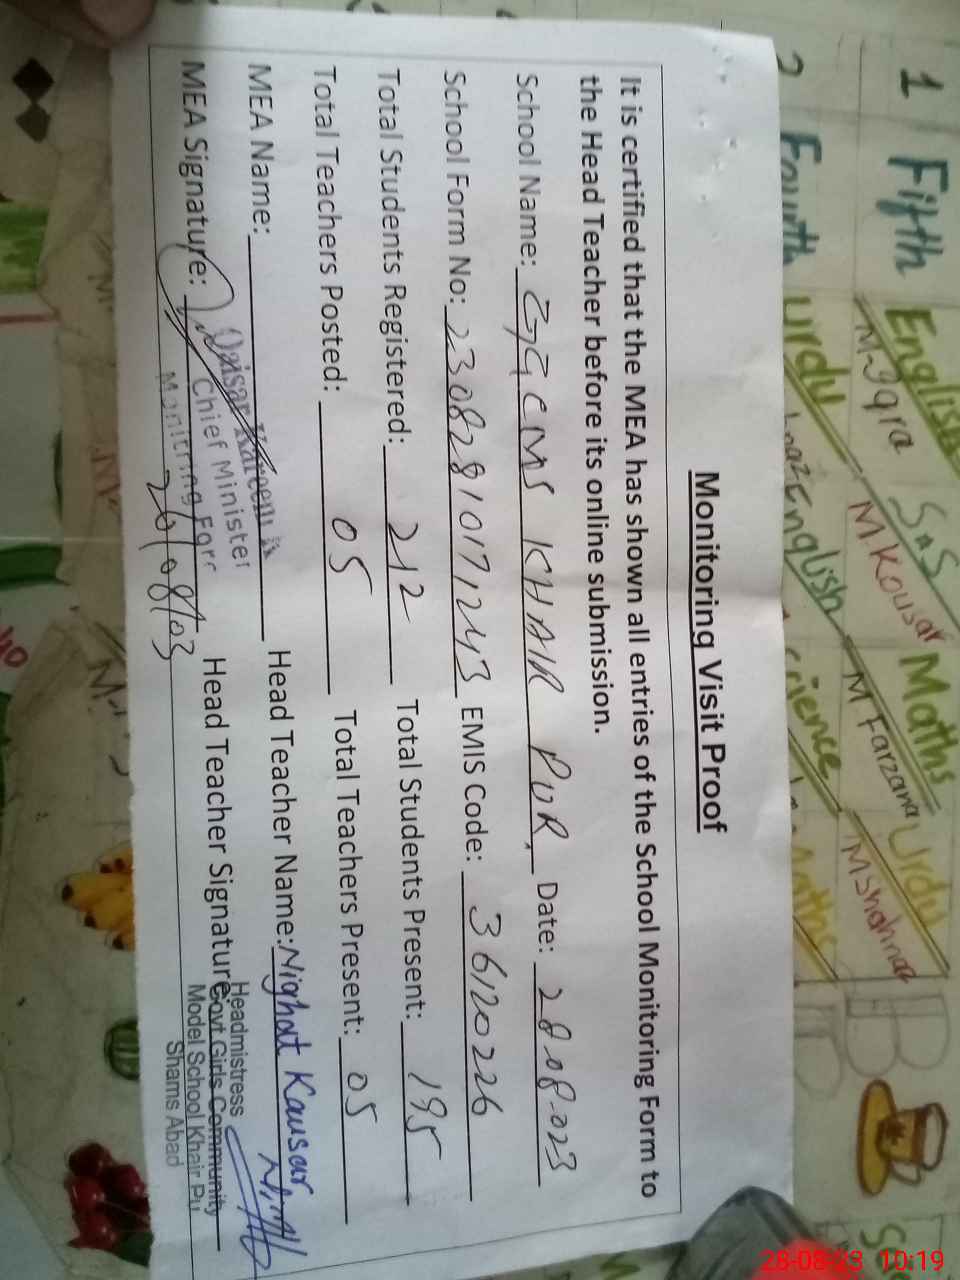 Monitoring Visit Proof
It is certified that the MEA has shown all entries of the School Monitoring Form to
the Head Teacher before its online submission.
School Name: GGCMS KHAIR PUR, Date: 28.08.023
School Form No: 23082810171243 EMIS Code: 36120226
Total Students Registered: 212 Total Students Present: 195
Total Teachers Posted: 05 Total Teachers Present: 05
MEA Name: Head Teacher Name: Nighat Kausar
Qaisar Kareem
Chief Minister
MEA Signature: Head Teacher Signature:
Headmistress
Govt Girls Community
Model School Khair Pu
Shams Abad
1 Fifth English S.S Maths Urdu
M-Iqra M Kousar M Farzana M Shahnaz
2 Fourth Urdu English Science Maths
28-08-23 10:19